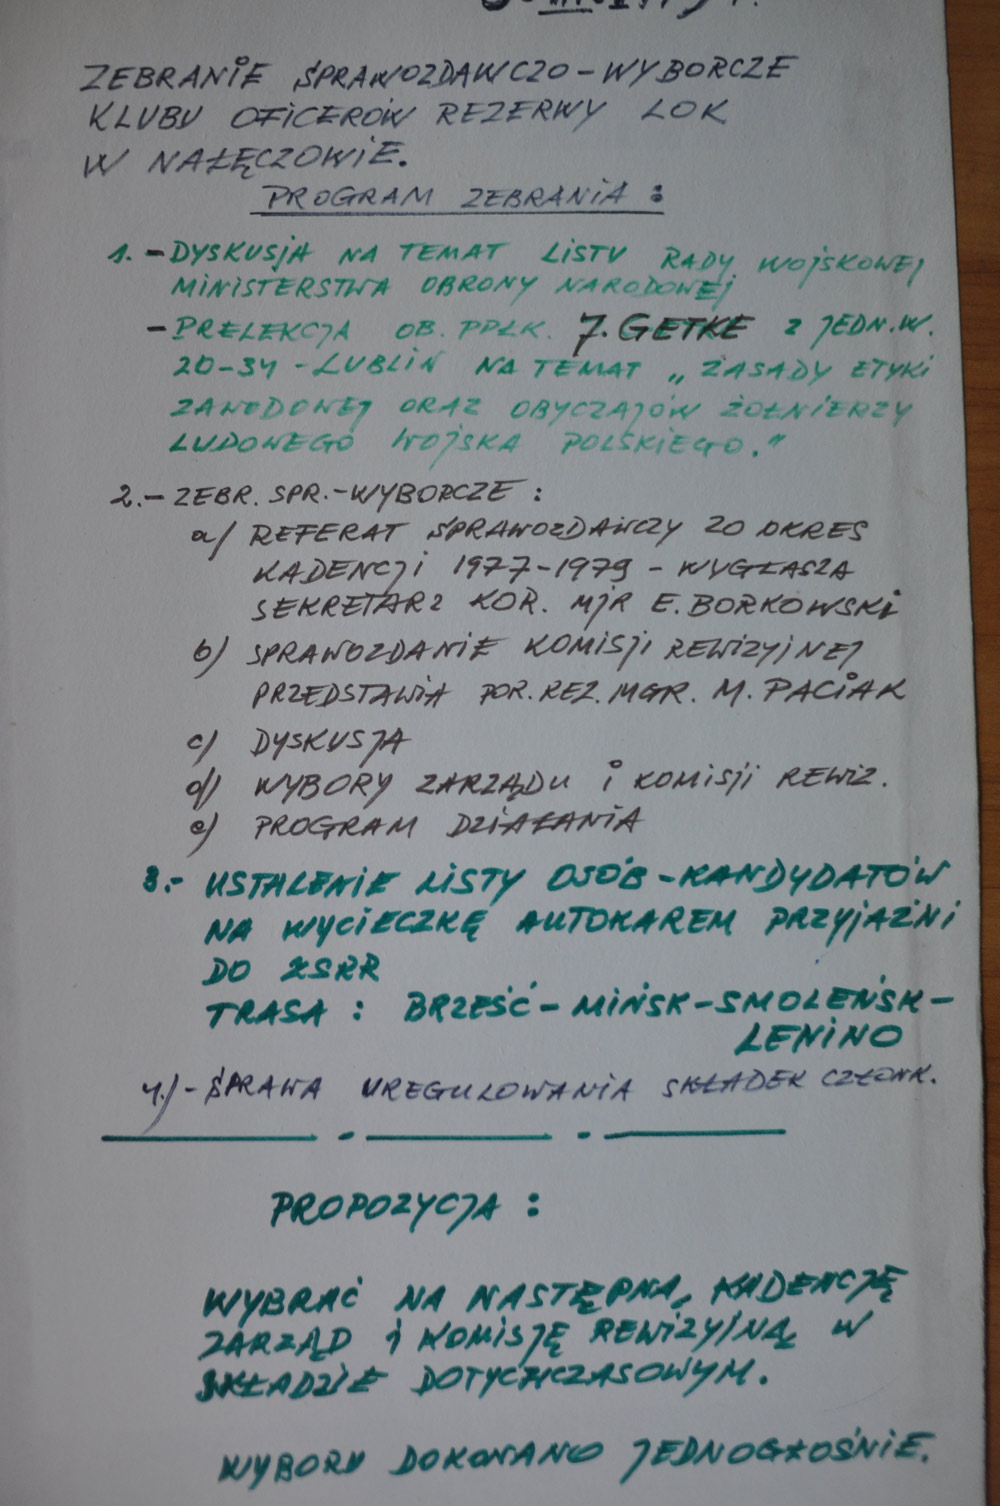 ZEBRANIE SPRAWOZDAWCZO-WYBORCZE
KLUBU OFICERÓW REZERWY LOK
W NAŁĘCZOWIE.
PROGRAM ZEBRANIA:
1. - DYSKUSJA NA TEMAT LISTU RADY WOJSKOWEJ
MINISTERSTWA OBRONY NARODOWEJ
- PRELEKCJA OB. PPŁK. J. GETKE Z JEDN.W.
20-34 - LUBLIN NA TEMAT „ZASADY ETYKI
ZAWODOWEJ ORAZ OBYCZAJÓW ŻOŁNIERZY
LUDOWEGO WOJSKA POLSKIEGO."
2. - ZEBR. SPR.-WYBORCZE:
a/ REFERAT SPRAWOZDAWCZY ZO OKRES
KADENCJI 1977-1979 - WYGŁASZA
SEKRETARZ KOR. MJR E. BORKOWSKI
b) SPRAWOZDANIE KOMISJI REWIZYJNEJ
PRZEDSTAWIA POR. REZ. MGR. M. PACIAK
c) DYSKUSJA
d) WYBORY ZARZĄDU I KOMISJI REWIZ.
e) PROGRAM DZIAŁANIA
3.- USTALENIE LISTY OSÓB-KANDYDATÓW
NA WYCIECZKĘ AUTOKAREM PRZYJAŹNI
DO ZSRR
TRASA: BRZEŚĆ-MIŃSK-SMOLEŃSK-
LENINO
4.)- SPRAWA UREGULOWANIA SKŁADEK CZŁONK.
PROPOZYCJA:
WYBRAĆ NA NASTĘPNĄ KADENCJĘ
ZARZĄD I KOMISJĘ REWIZYJNĄ W
SKŁADZIE DOTYCHCZASOWYM.
WYBORU DOKONANO JEDNOGŁOŚNIE.